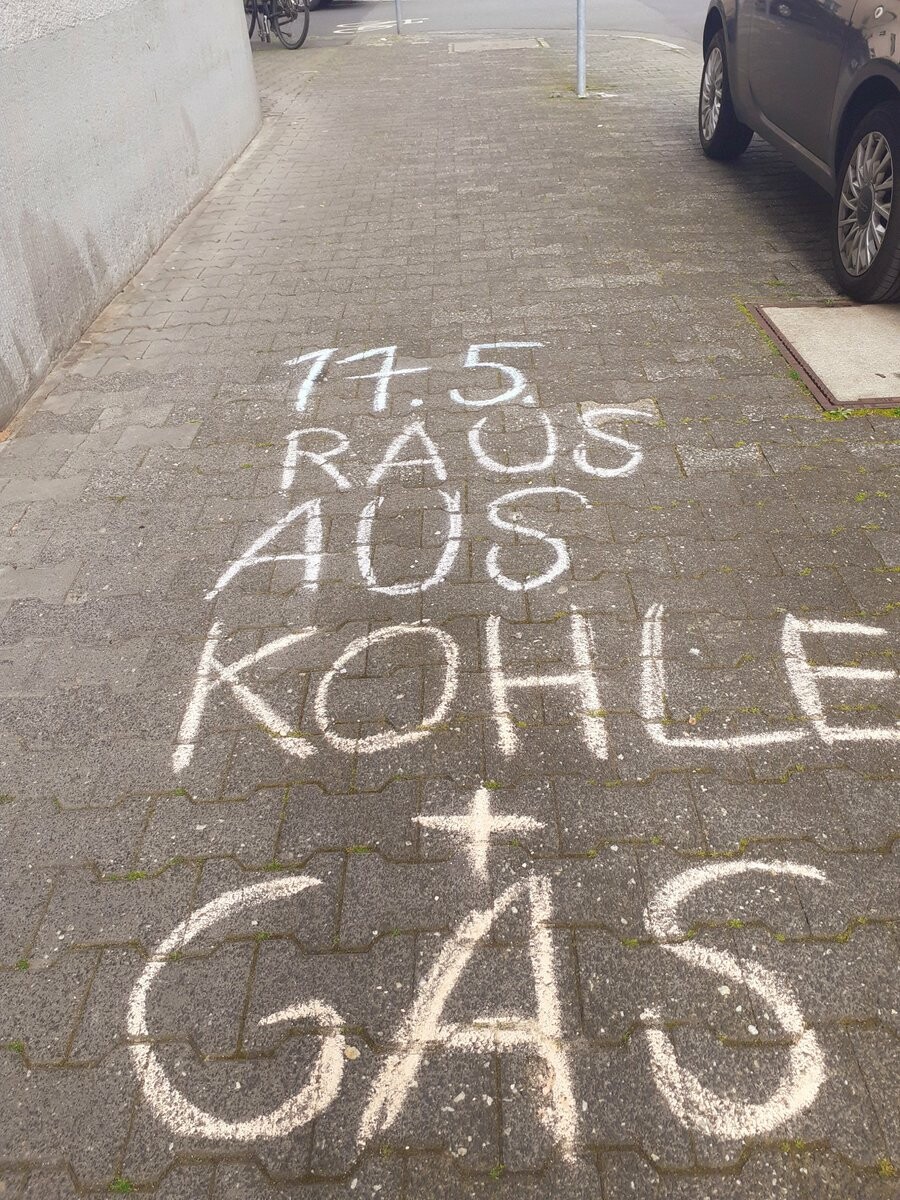 17.5.
RAUS
AUS
KOHLE
+
GAS